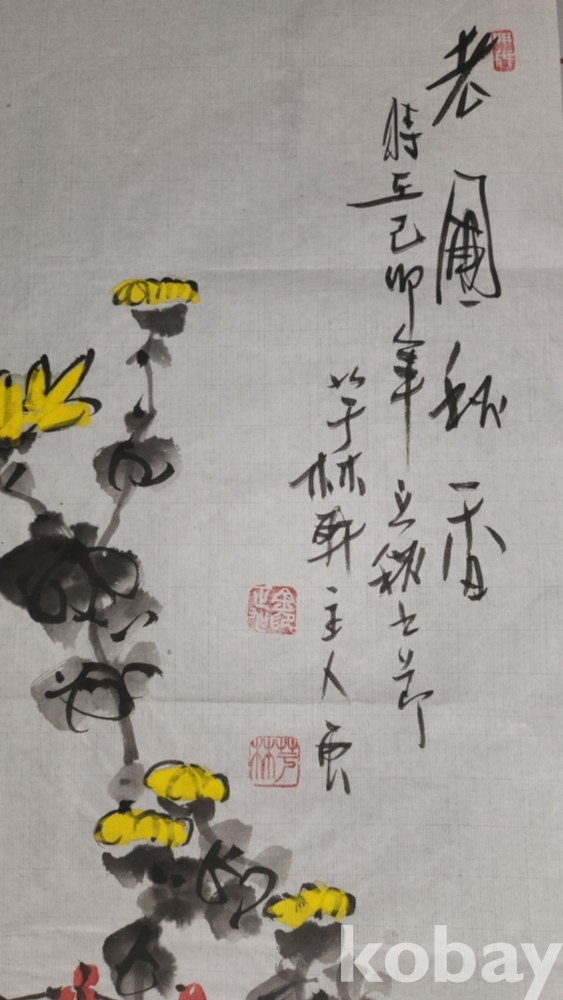 老圃秋香
時在己卯年立秋之節
芋林軒主人
kobay